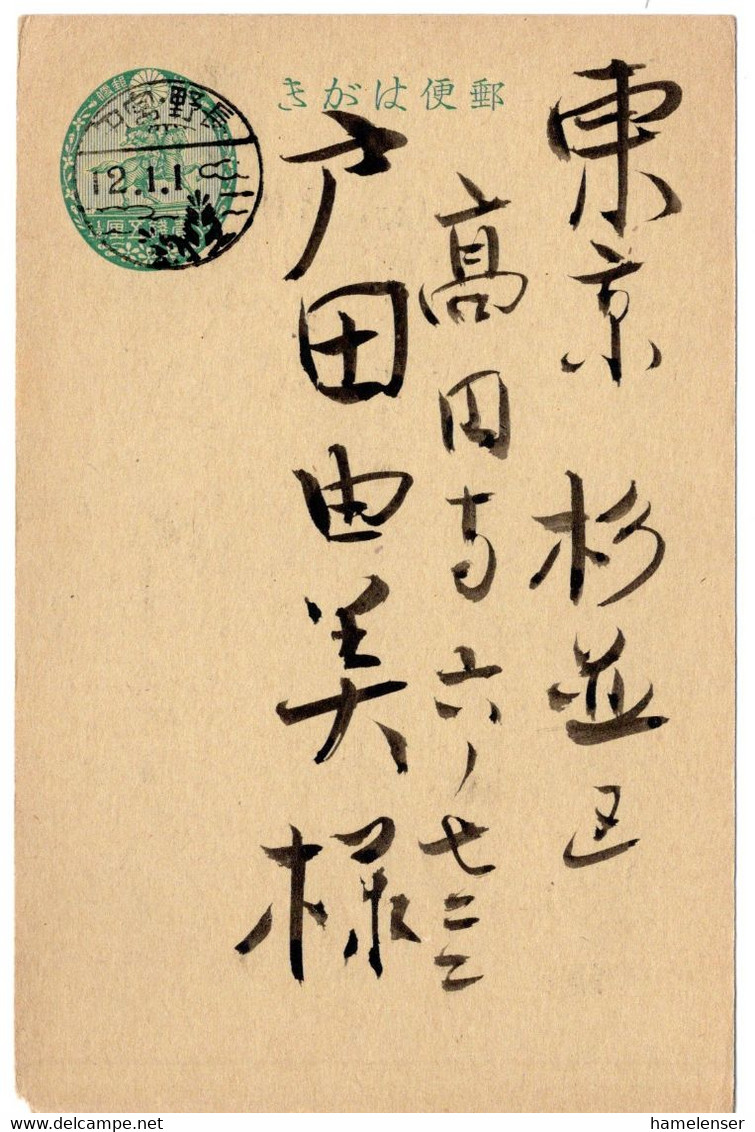 郵便はがき
長野・宮田
12.1.1
東京 杉並区
高円寺六ノ七二二
戸田由美様
hamelenser